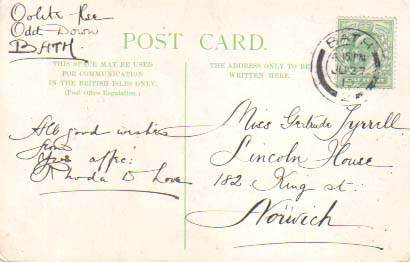 Oolite Ree
Odd Down
BATH.
POST CARD.
THIS SPACE MAY BE USED
FOR COMMUNICATION
IN THE BRITISH ISLES ONLY.
(Post Office Regulation.)
THE ADDRESS ONLY TO BE
WRITTEN HERE.
BATH
PM
JU
All good wishes
from
affec:
Rhoda D Love
Miss Gertrude Tyrrell
Lincoln House
182 King St.
Norwich